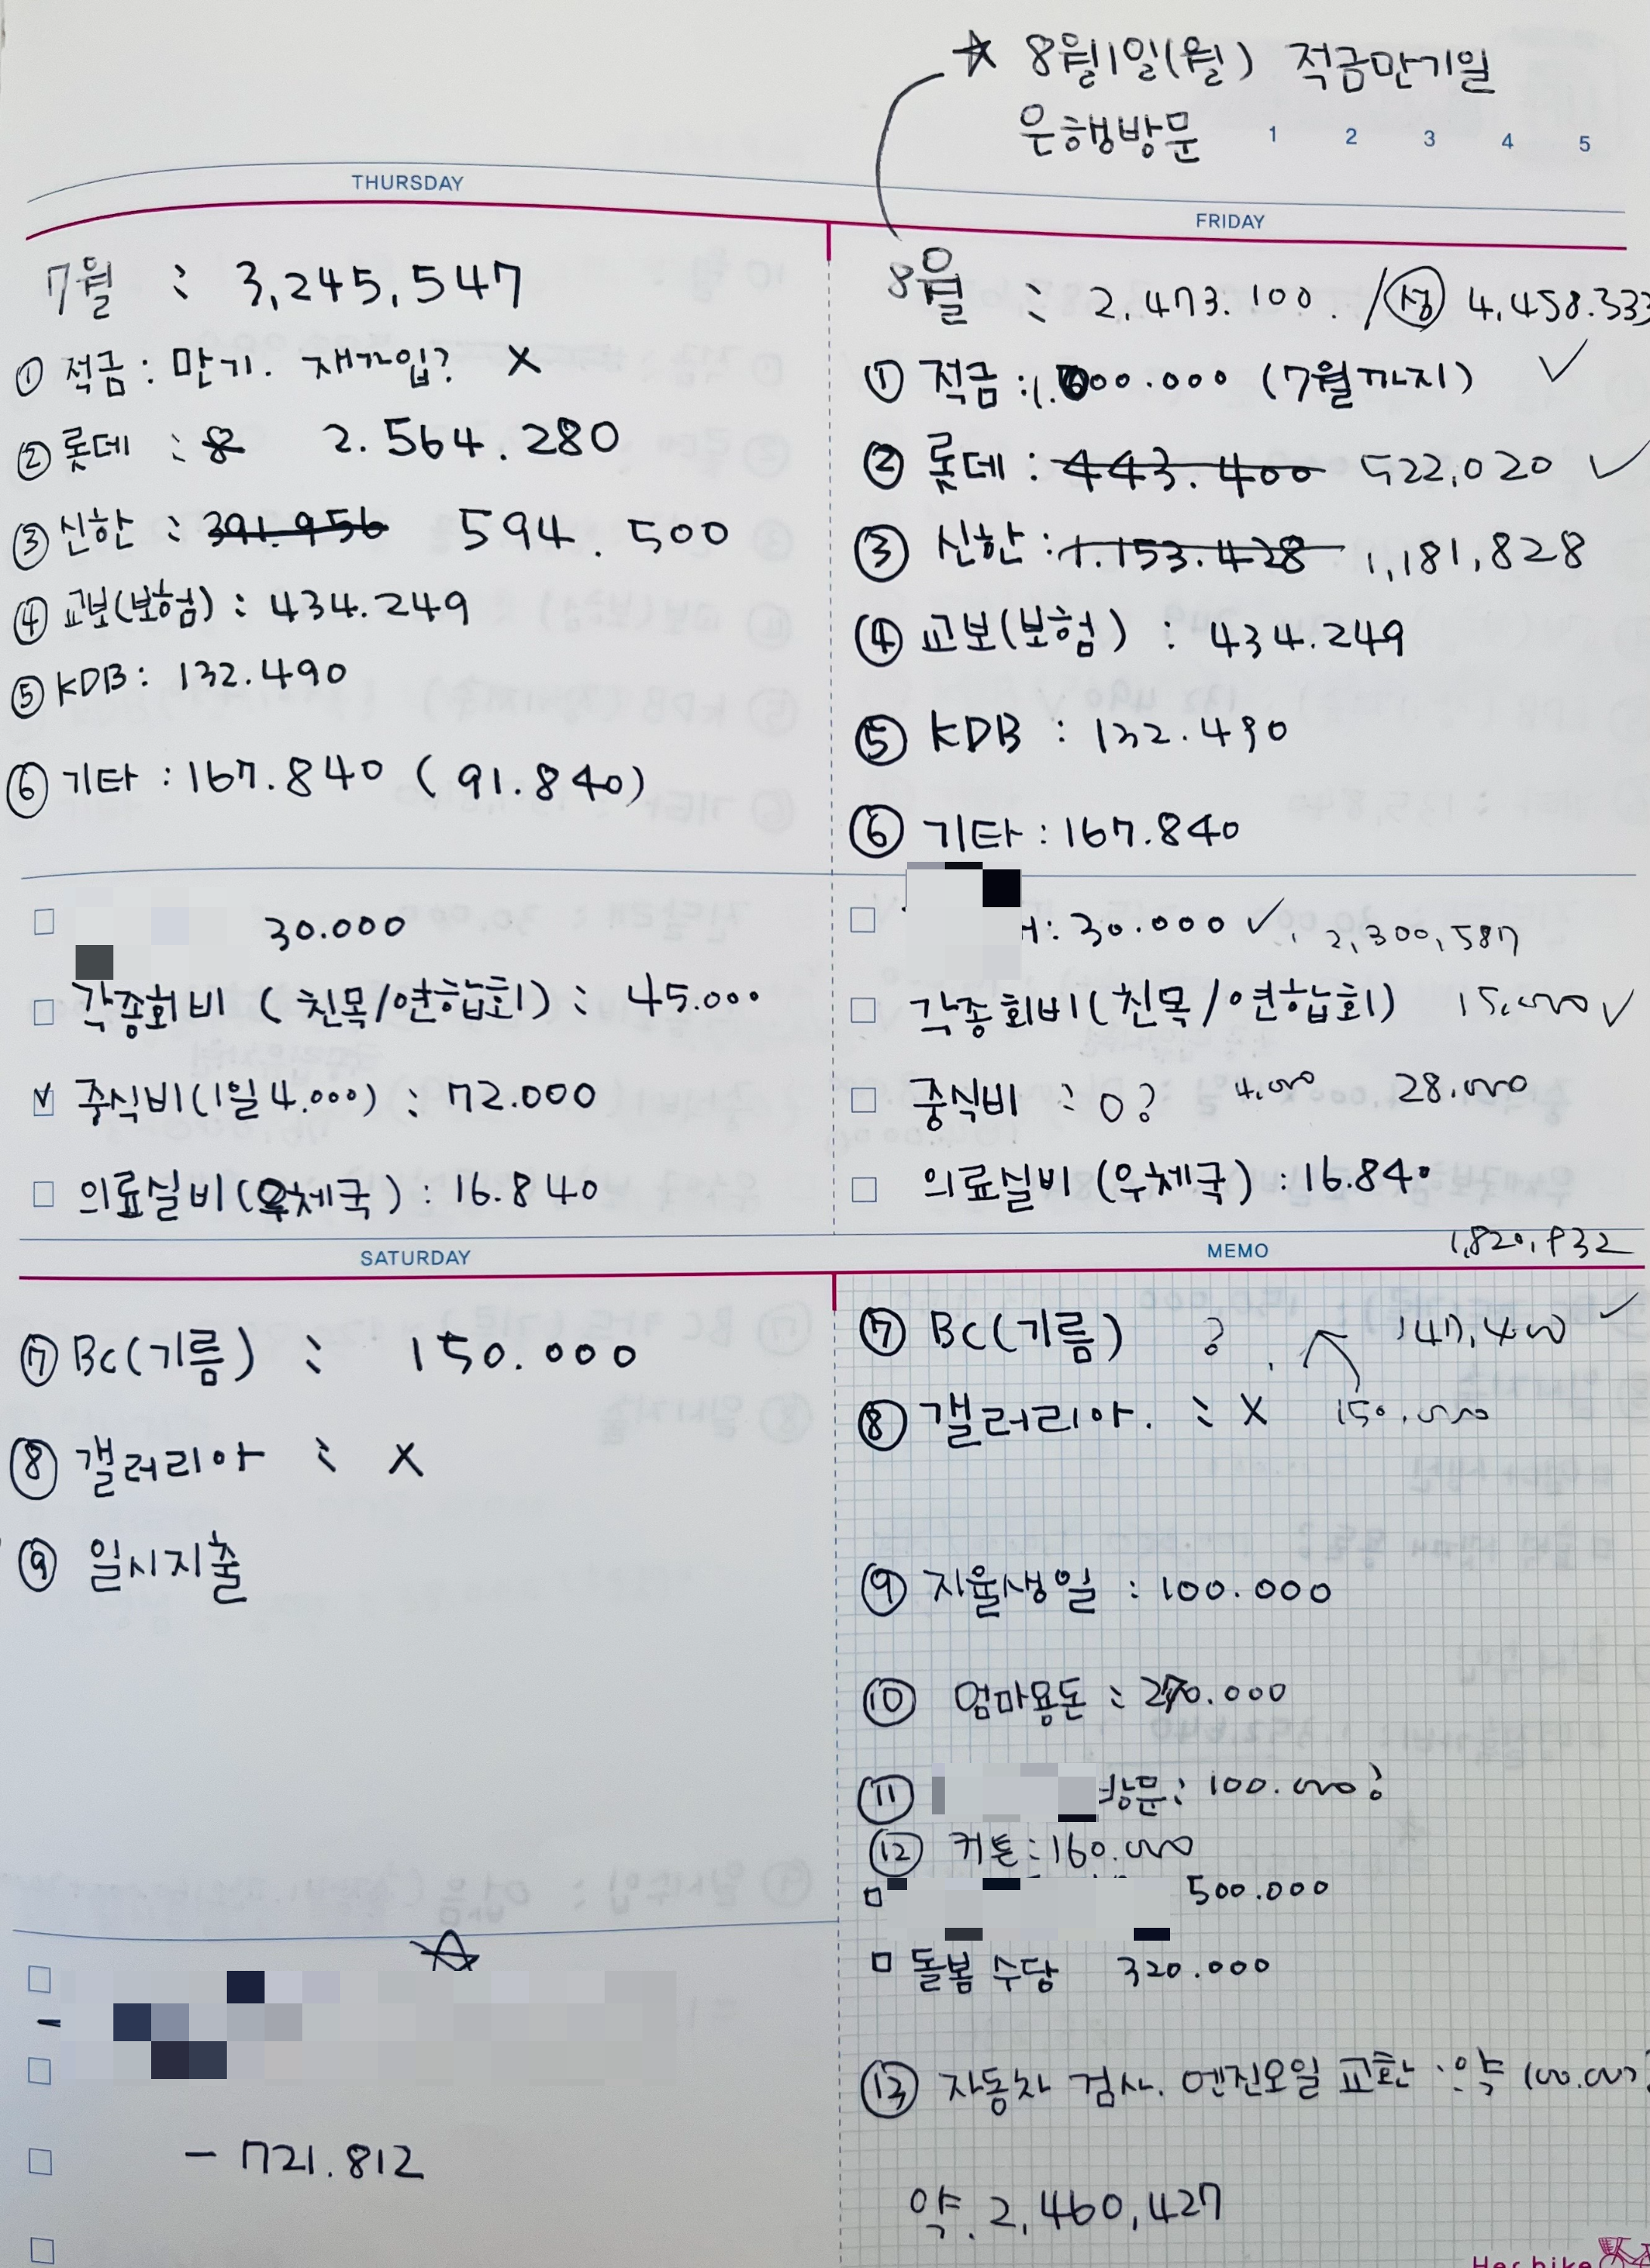 ☆ 8월1일(월) 적금만기일
은행방문
1 2 3 4 5
THURSDAY
7월 : 3,245,547
① 적금 : 만기. 재가입? X
② 롯데 : 2.564.280
③ 신한 : 391.956 594.500
④ 교보(보험) : 434.249
⑤ KDB : 132.490
⑥ 기타 : 167.840 (91.840)
30.000
각종회비 (친목/연합회) : 45.000
중식비(1일 4.000) : 72.000
의료실비(우체국) : 16.840
FRIDAY
8월 : 2,473.100. / 성 4,458.333
① 적금 : 1. 00.000 (7월까지) ✓
② 롯데 : 443.400 522,020 ✓
③ 신한 : 1.153.428 1,181,828
④ 교보(보험) : 434.249
⑤ KDB : 132.490
⑥ 기타 : 167.840
: 30.000 ✓. 2,300,587
각종회비(친목/연합회) 15,000 ✓
중식비 : 0? 4,000 28.000
의료실비(우체국) : 16.840
SATURDAY
⑦ BC(기름) : 150.000
⑧ 갤러리아 : X
⑨ 일시지출
☆
- 721.812
MEMO
1,820,932
⑦ BC(기름) ? 147,400 ✓
⑧ 갤러리아. : X 150.000
⑨ 지율생일 : 100.000
⑩ 엄마용돈 : 270.000
⑪ 방문 : 100.000?
⑫ 커튼 : 160.000
500.000
돌봄 수당 320.000
⑬ 자동차 검사. 엔진오일 교환 : 약 100.000?
약. 2,460,427
Her bike